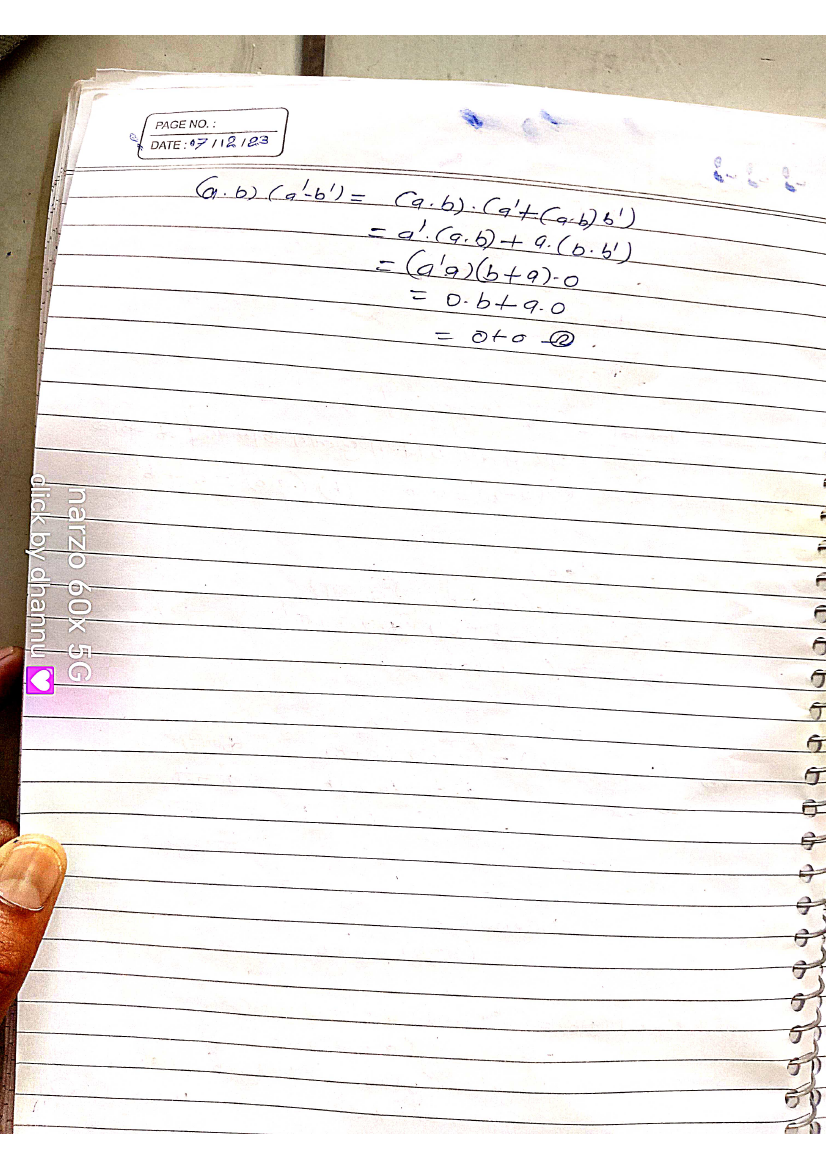 PAGE NO. :
DATE : 07/12/23
(a.b) (a'-b') = (a.b).(a'+(a.b)b')
= a'.(a.b)+ a.(b.b')
= (a'a)(b+a).0
= 0.b+a.0
= 0+0 ②.
narzo 60x 5G
click by dhannu